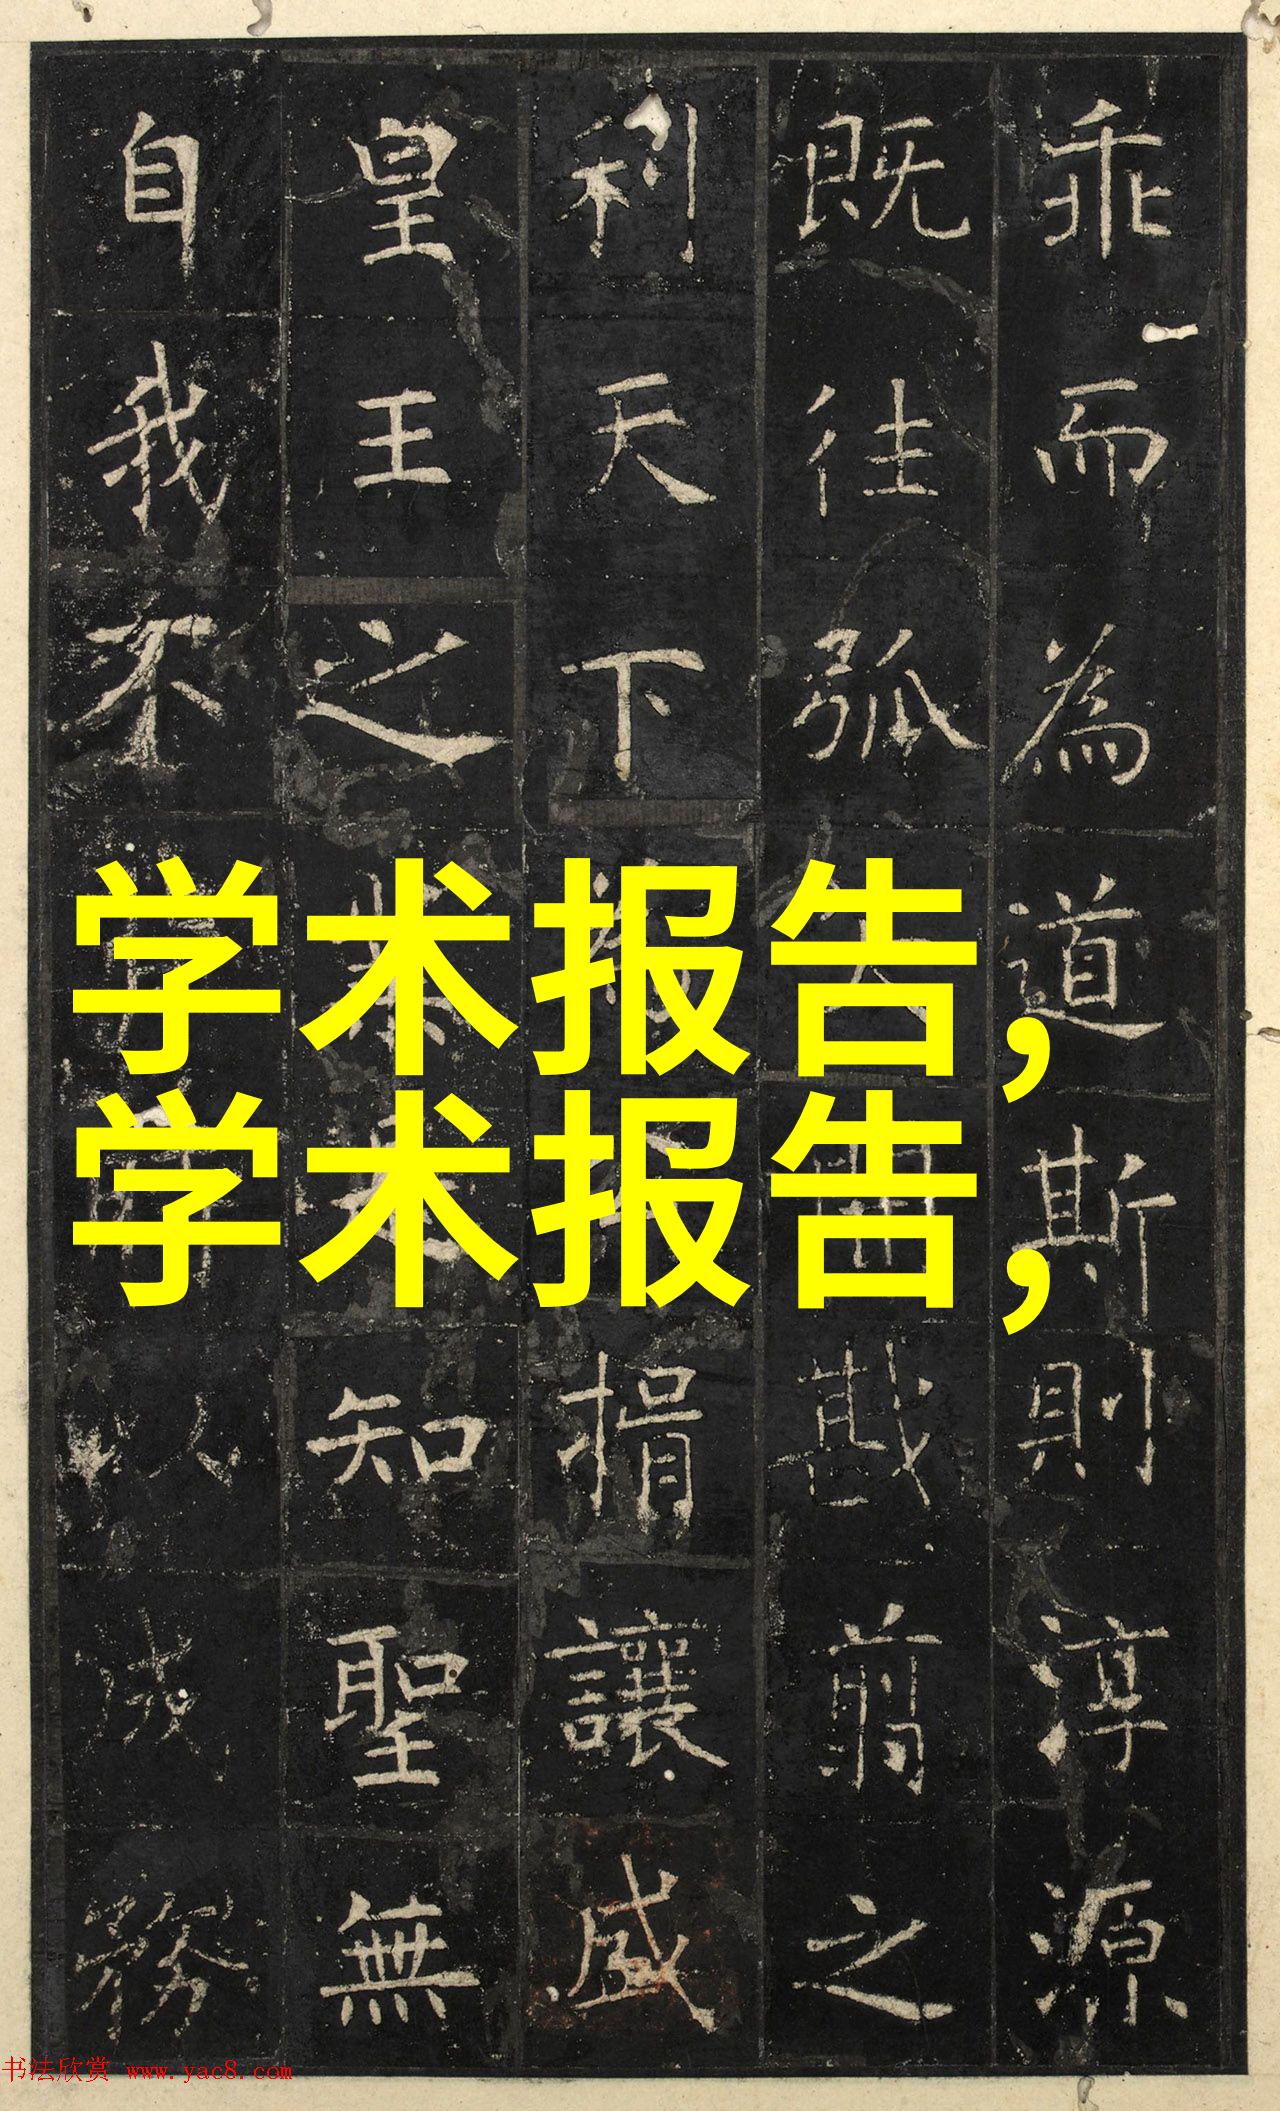 乖而為道斯則淳源
既往弧戡翦之
利天下捐讓盛
皇王之知聖無
自我不以成務
学术报告,
学术报告,
书法欣赏 www.yac8.com